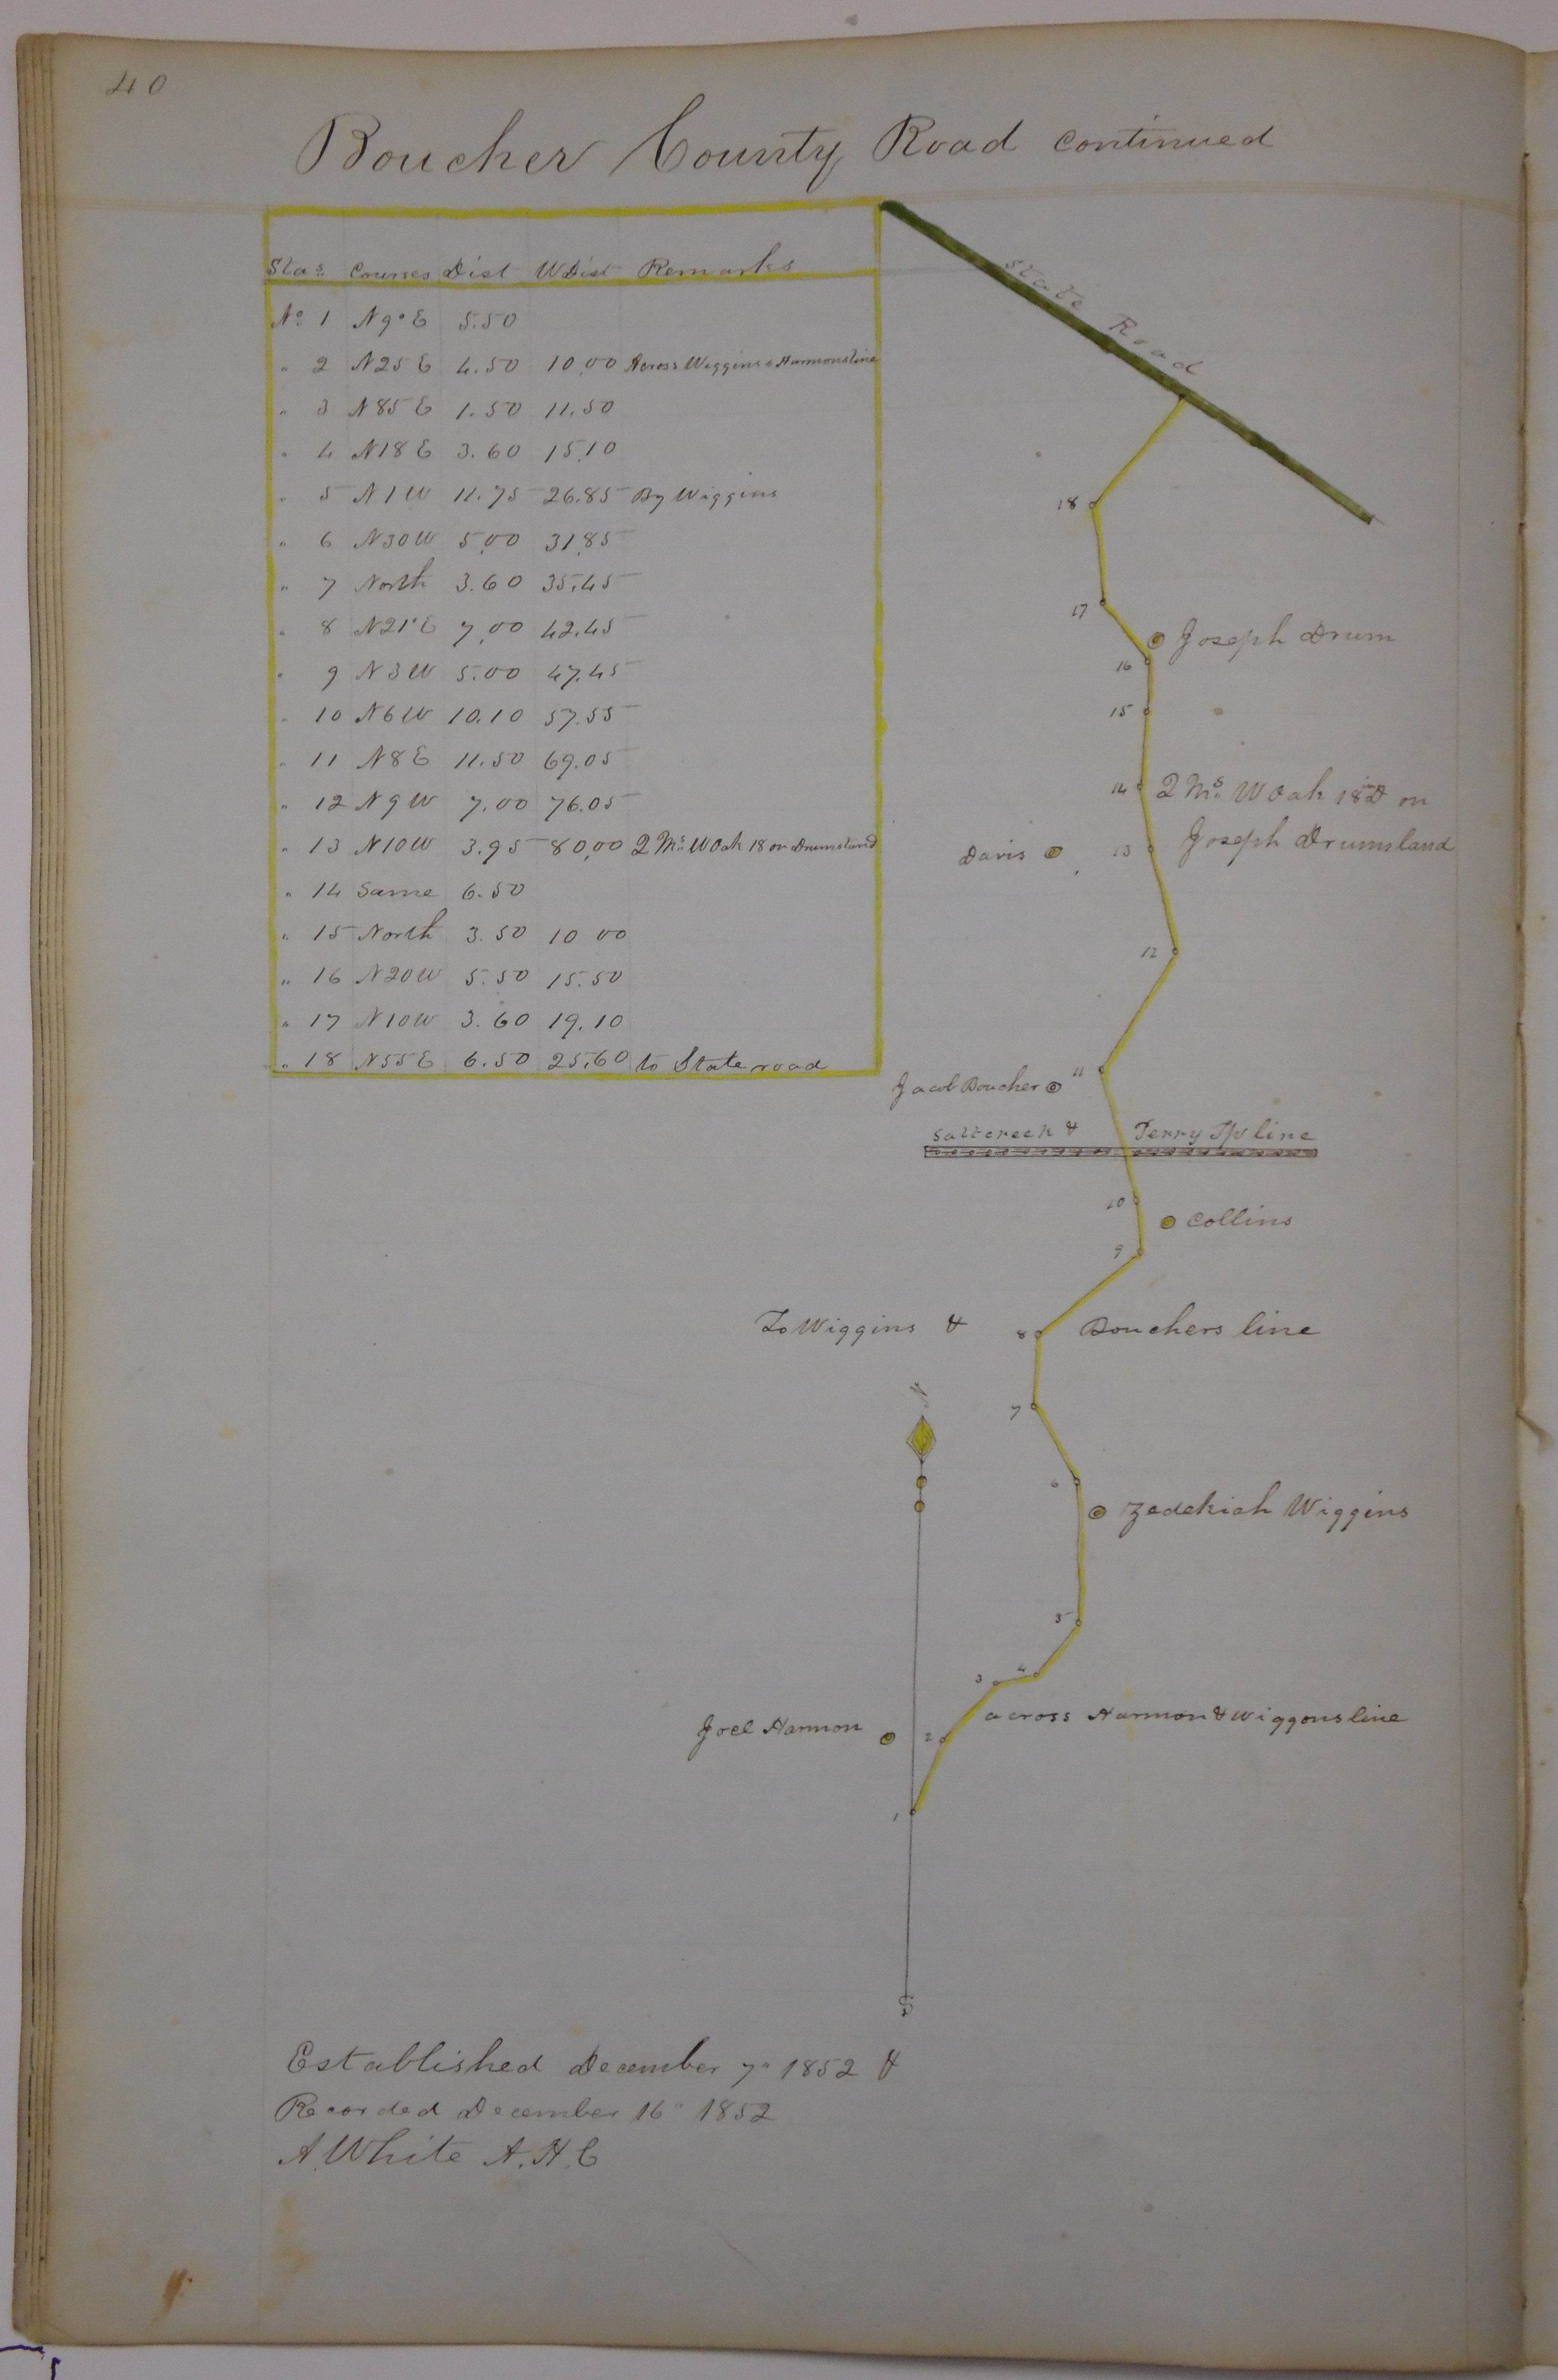 40
Boucher County Road continued
Stas Courses Dist W Dist Remarks
No 1 N9°E 5.50
" 2 N25E 4.50 10.00 Across Wiggins & Harmons line
" 3 N85E 1.50 11.50
" 4 N18E 3.60 15.10
" 5 N1W 11.75 26.85 By Wiggins
" 6 N30W 5.00 31.85
" 7 North 3.60 35.45
" 8 N21°E 7.00 42.45
" 9 N3W 5.00 47.45
" 10 N6W 10.10 57.55
" 11 N8E 11.50 69.05
" 12 N9W 7.00 76.05
" 13 N10W 3.95 80.00 2 Ms W Oak 18 on Drums land
" 14 Same 6.50
" 15 North 3.50 10 00
" 16 N20W 5.50 15.50
" 17 N10W 3.60 19.10
" 18 N55E 6.50 25.60 to State road
State Road
18
17
Joseph Drum
16
15
14 2 Ms W Oak 18 in D on
Davis 13 Joseph Drums land
12
Jacob Boucher 11
Saltcreek & Perry Tp line
10
Collins
9
To Wiggins & 8 Bouchers line
N
7
6
Zedekiah Wiggins
5
4
3
across Harmon & Wiggons line
Joel Harmon 2
1
S
Established December 7" 1852 &
Recorded December 16" 1852
A. White A.H.C